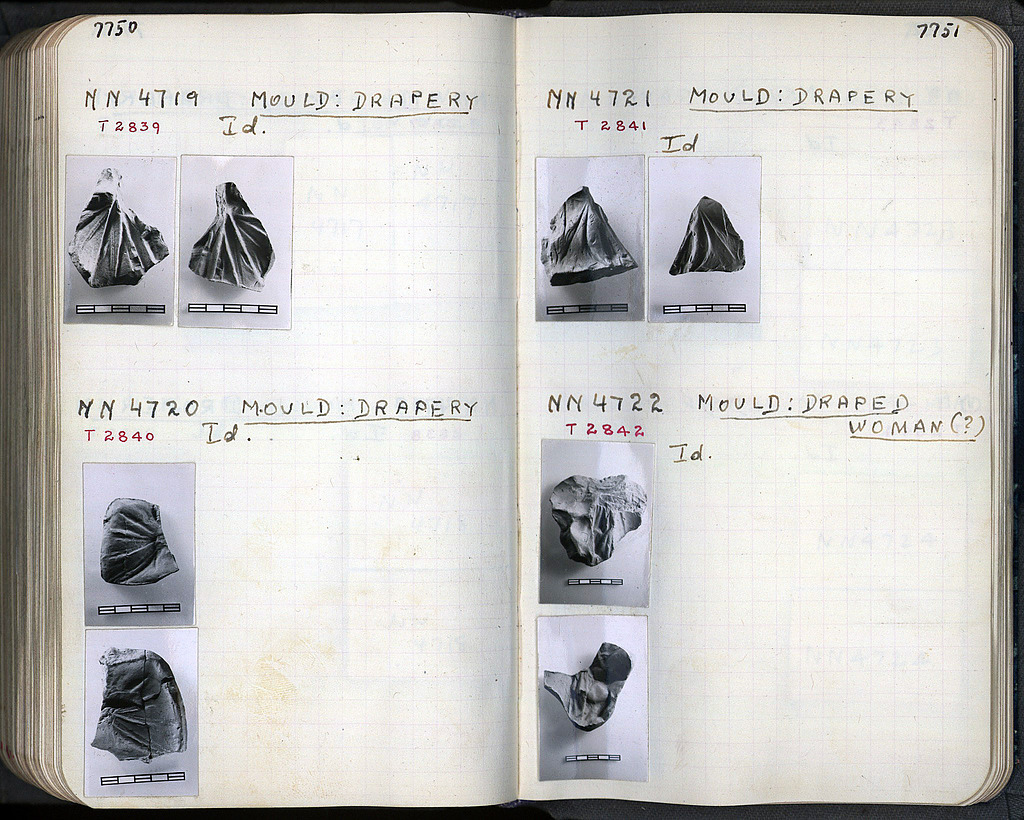 7750
NN 4719 MOULD: DRAPERY
T 2839 Id.
NN 4720 MOULD: DRAPERY
T 2840 Id.
7751
NN 4721 MOULD: DRAPERY
T 2841 Id
NN 4722 MOULD: DRAPED
T 2842 WOMAN (?)
Id.